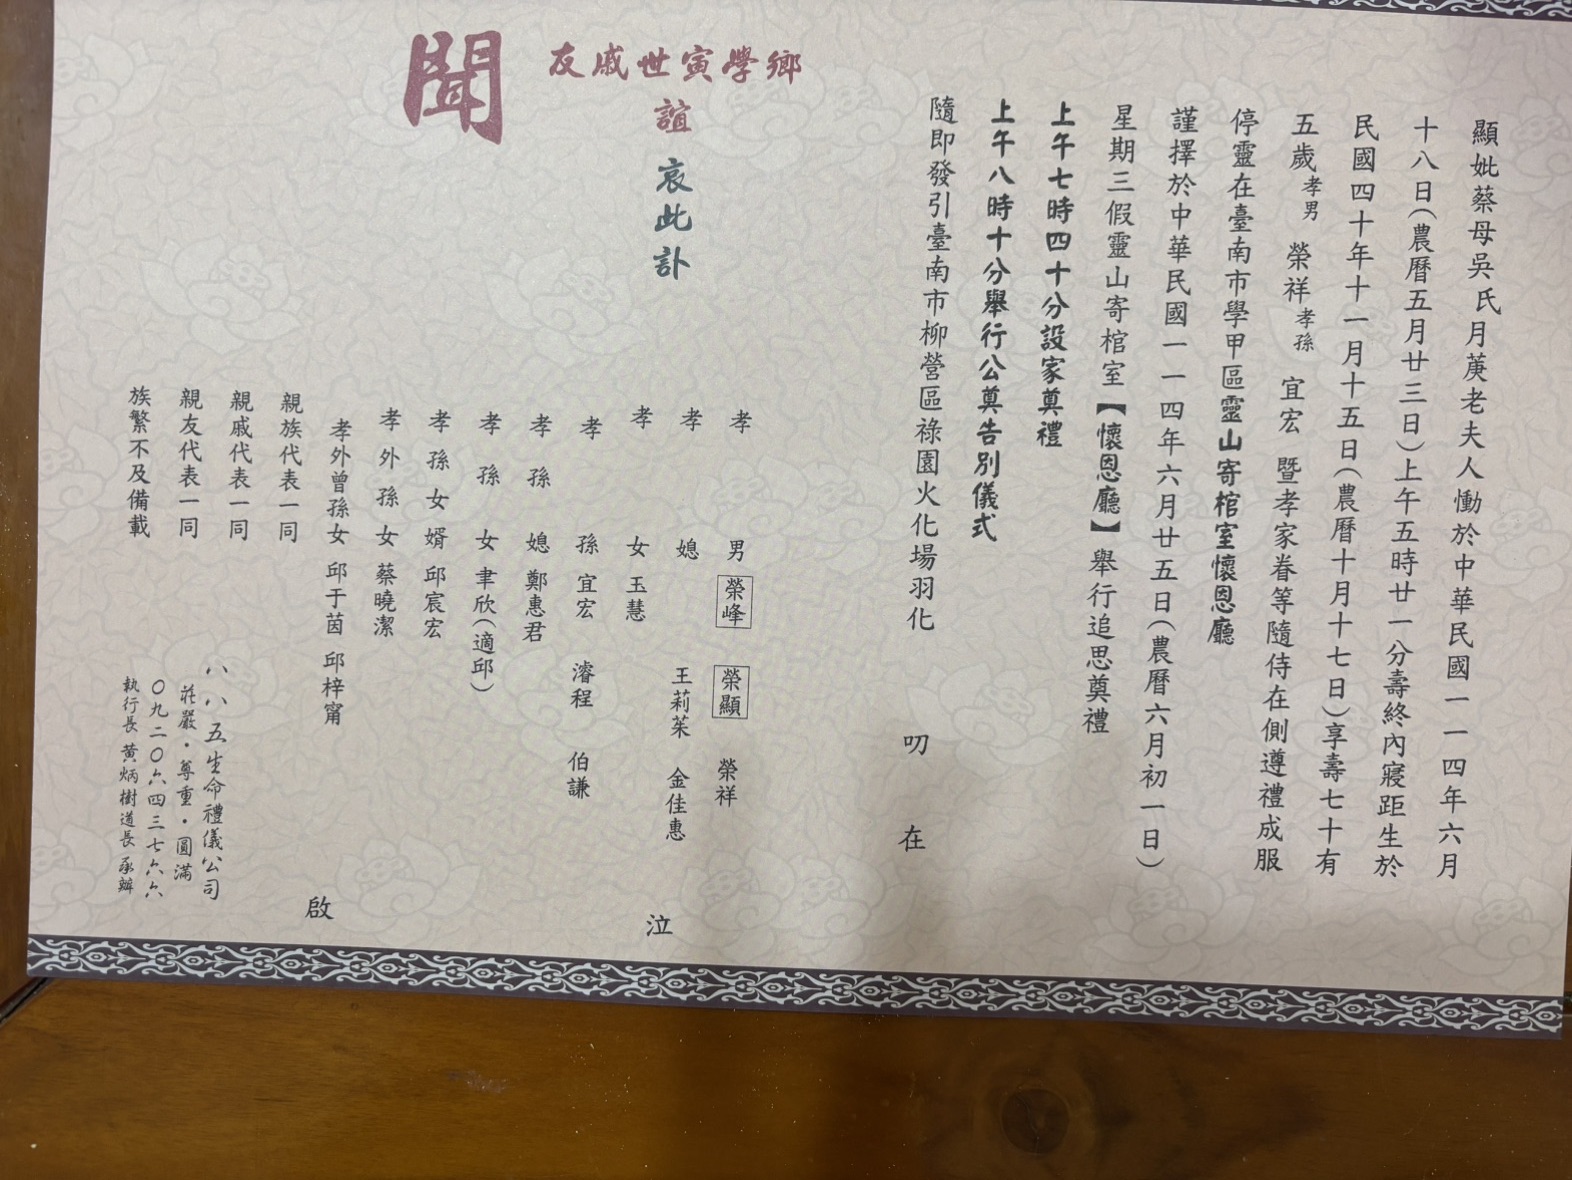 顯妣蔡母吳氏月萭老夫人慟於中華民國一一四年六月
十八日(農曆五月廿三日)上午五時廿一分壽終內寢距生於
民國四十年十一月十五日(農曆十月十七日)享壽七十有
五歲孝男 榮祥孝孫 宜宏 暨孝家眷等隨侍在側遵禮成服
停靈在臺南市學甲區靈山寄棺室懷恩廳
謹擇於中華民國一一四年六月廿五日(農曆六月初一日)
星期三假靈山寄棺室【懷恩廳】舉行追思奠禮
上午七時四十分設家奠禮
上午八時十分舉行公奠告別儀式
隨即發引臺南市柳營區祿園火化場羽化
叨 在
鄉學寅世戚友
誼 哀此訃
聞
孝 男 榮峰 榮顯 榮祥
孝 媳 王莉茱 金佳惠
孝 女 玉慧
孝 孫 宜宏 濬程 伯謙
孝孫 媳 鄭惠君
孝孫 女 聿欣(適邱)
孝孫女婿 邱宸宏
孝外孫女 蔡曉潔
孝外曾孫女 邱于茵 邱梓甯
泣
親族代表一同
親戚代表一同
親友代表一同
族繁不及備載
啟
八八五生命禮儀公司
莊嚴・尊重・圓滿
〇九二〇六四三七六六
執行長 黃炳樹道長 承辦